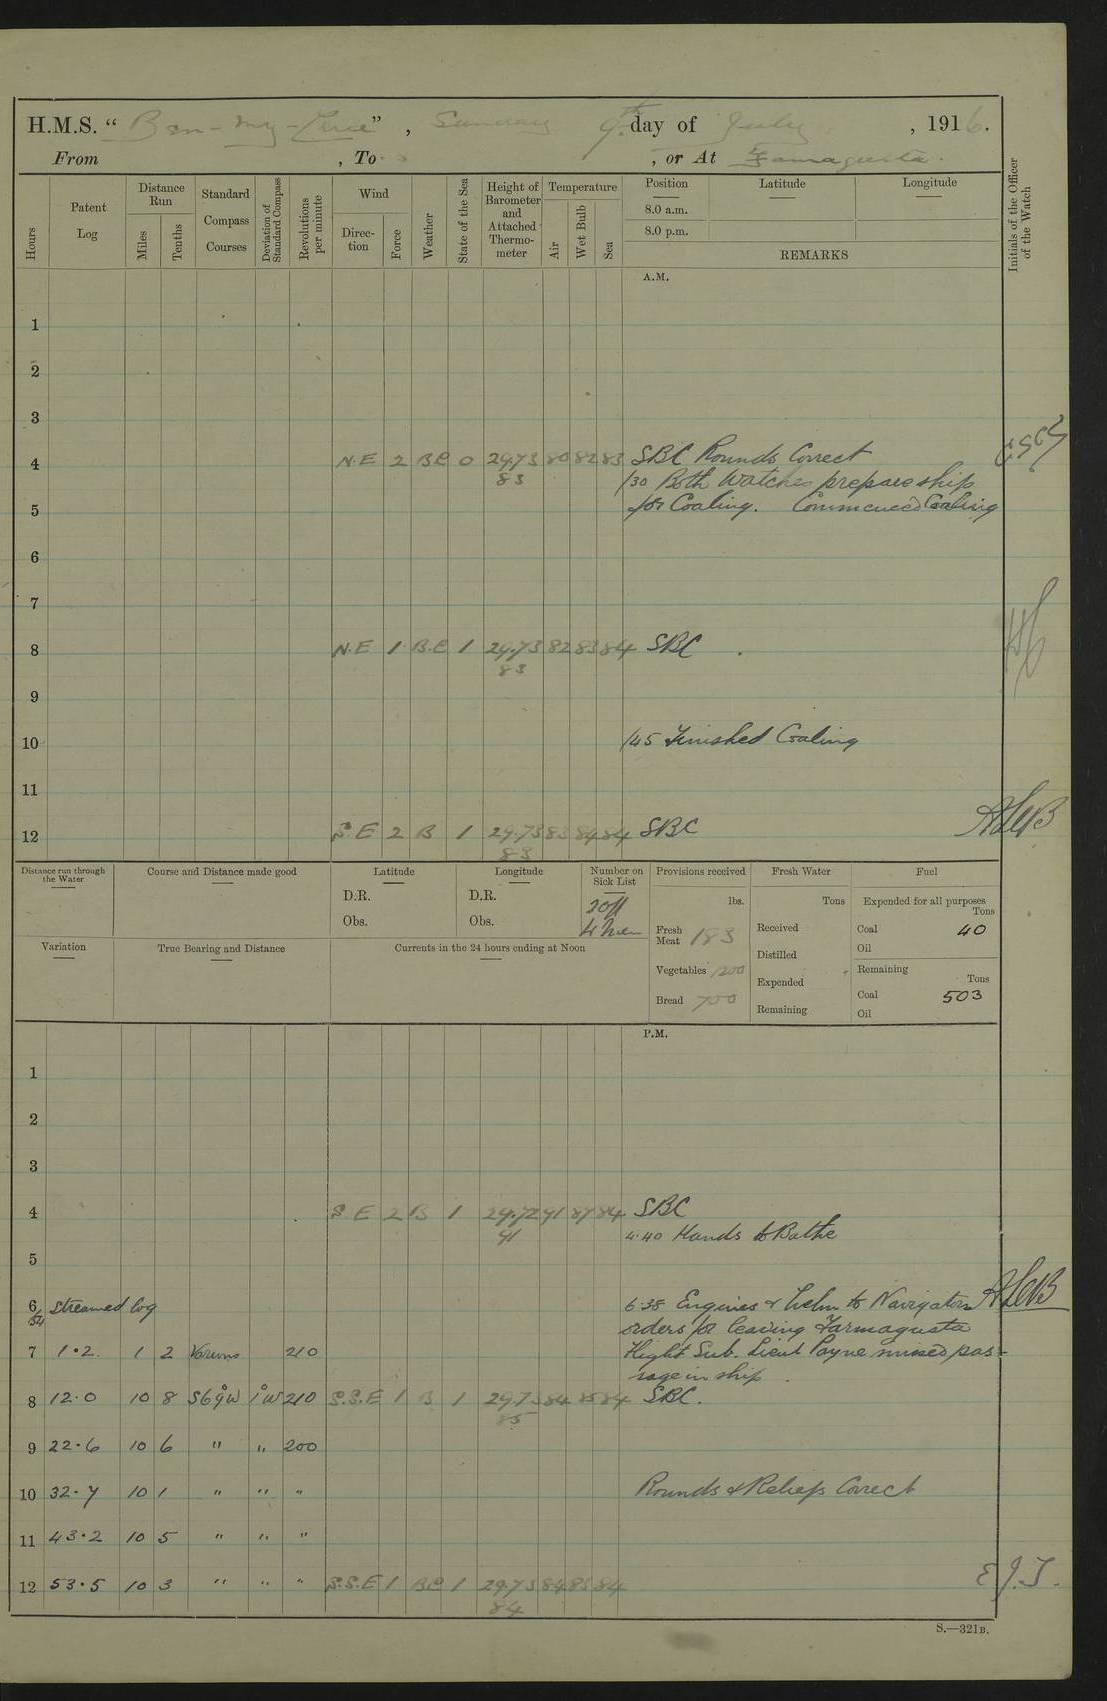 H.M.S. "Ben-my-Chree", Sunday 9th day of July, 1916.
From , To , or At Famagusta.
Hours
Patent Log
Distance Run
Miles
Tenths
Standard Compass Courses
Deviation of Standard Compass
Revolutions per minute
Wind
Direction
Force
Weather
State of the Sea
Height of Barometer and Attached Thermometer
Temperature
Air
Wet Bulb
Sea
Position
8.0 a.m.
8.0 p.m.
Latitude
Longitude
REMARKS
Initials of the Officer of the Watch
A.M.
1
2
3
4 N.E 2 BC 0 29.73 80 82 83 SBC Rounds Correct
83 /30 Both Watches prepare ship
5 for Coaling. Commenced Coaling
6
7
8 N.E 1 B.C 1 29.73 82 83 84 SBC
83
9
10 /45 Finished Coaling
11
12 S.E 2 B 1 29.73 83 84 84 SBC
83
Distance run through the Water
Course and Distance made good
Latitude
D.R.
Obs.
Longitude
D.R.
Obs.
Number on Sick List
2 Off
4 Men
Provisions received
lbs.
Fresh Meat 183
Vegetables 1200
Bread 700
Fresh Water
Tons
Received
Distilled
Expended
Remaining
Fuel
Expended for all purposes
Tons
Coal 40
Oil
Remaining
Tons
Coal 503
Oil
Variation
True Bearing and Distance
Currents in the 24 hours ending at Noon
P.M.
1
2
3
4 S E 2 B 1 29.72 91 87 84 SBC
91 4.40 Hands to Bathe
5
6 Streamed log 6.38 Engines & helm to Navigators
orders for leaving Farmagusta
7 1.2 1 2 Various 210 Flight Sub. Lieut Payne missed pas-
sage in ship.
8 12.0 10 8 S69°W 1°W 210 S.S.E 1 B 1 29.73 84 85 84 SBC.
85
9 22.6 10 6 " " 200
10 32.7 10 1 " " " Rounds & Reliefs Correct
11 43.2 10 5 " " "
12 53.5 10 3 " " " S.S.E 1 BC 1 29.73 84 83 84 E.J.T.
84
S.—321B.